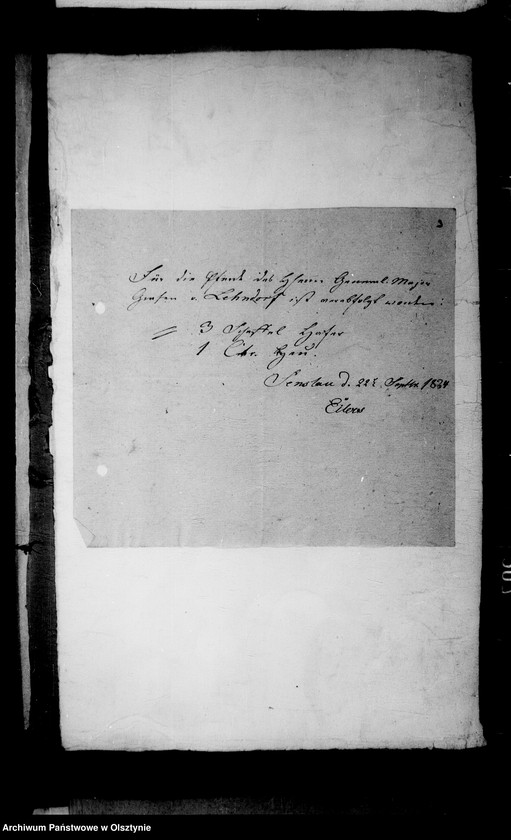 3
Für die Pferde des Herrn General-Major
Grafen v. Lehndorf ist verabfolgt worden:
3 Scheffel Hafer
1 Ctr. Heu.
Senslau d. 22t. Septbr. 1834
Eilers
Archiwum Państwowe w Olsztynie